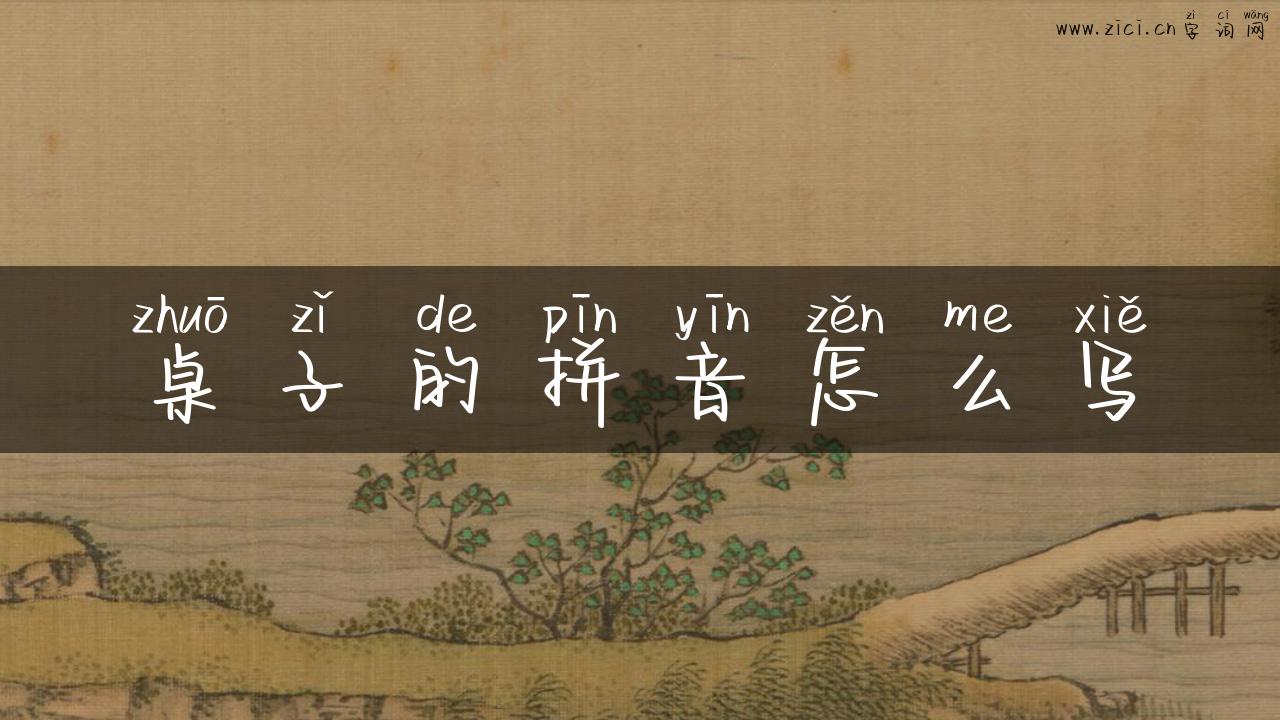 zì cí wǎng
www.zici.cn 字 词 网
zhuō zǐ de pīn yīn zěn me xiě
桌 子 的 拼 音 怎 么 写